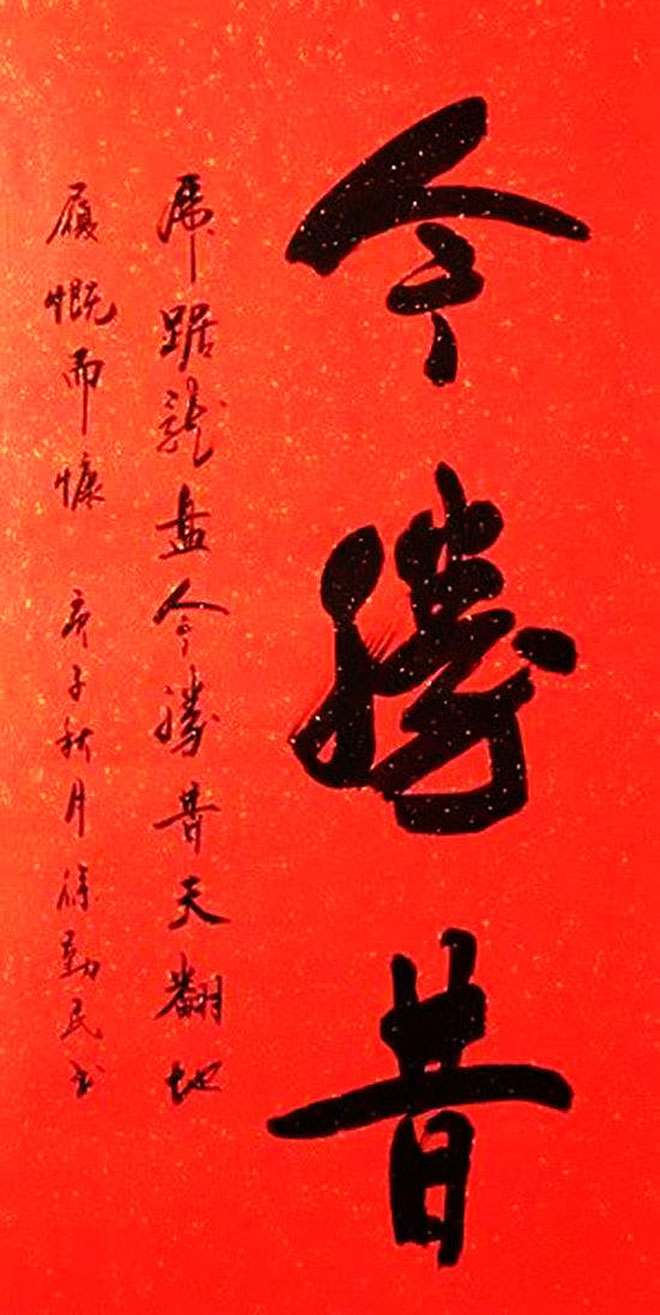 今勝昔
虎踞龍盘今勝昔天翻地
履慨而慷 庚子秋月徐勤民书